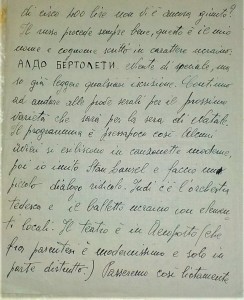 di circa 3000 lire non vi è ancora giunto?
Il russo procede sempre bene, questo è il mio
nome e cognome scritto in carattere ucraino:
АЛДО БЕРТОЛЕТИ niente di speciale, ma
so già leggere qualsiasi iscrizione. Continuo
ad andare alle prove serali per il prossimo
varietà che sarà per la sera di
Il programma è pressapoco così: Alcuni
si esibiscono in canzonette moderne,
poi io imito Stan Laurel e faccio un
piccolo dialogo ridicolo. Indi c'è l'orchestra
tedesca e il balletto ucraino con
ti locali. Il teatro è in Aeroporto (che
fra parentesi è modernissimo e solo in
parte distrutto.) Passeremo così lietamente